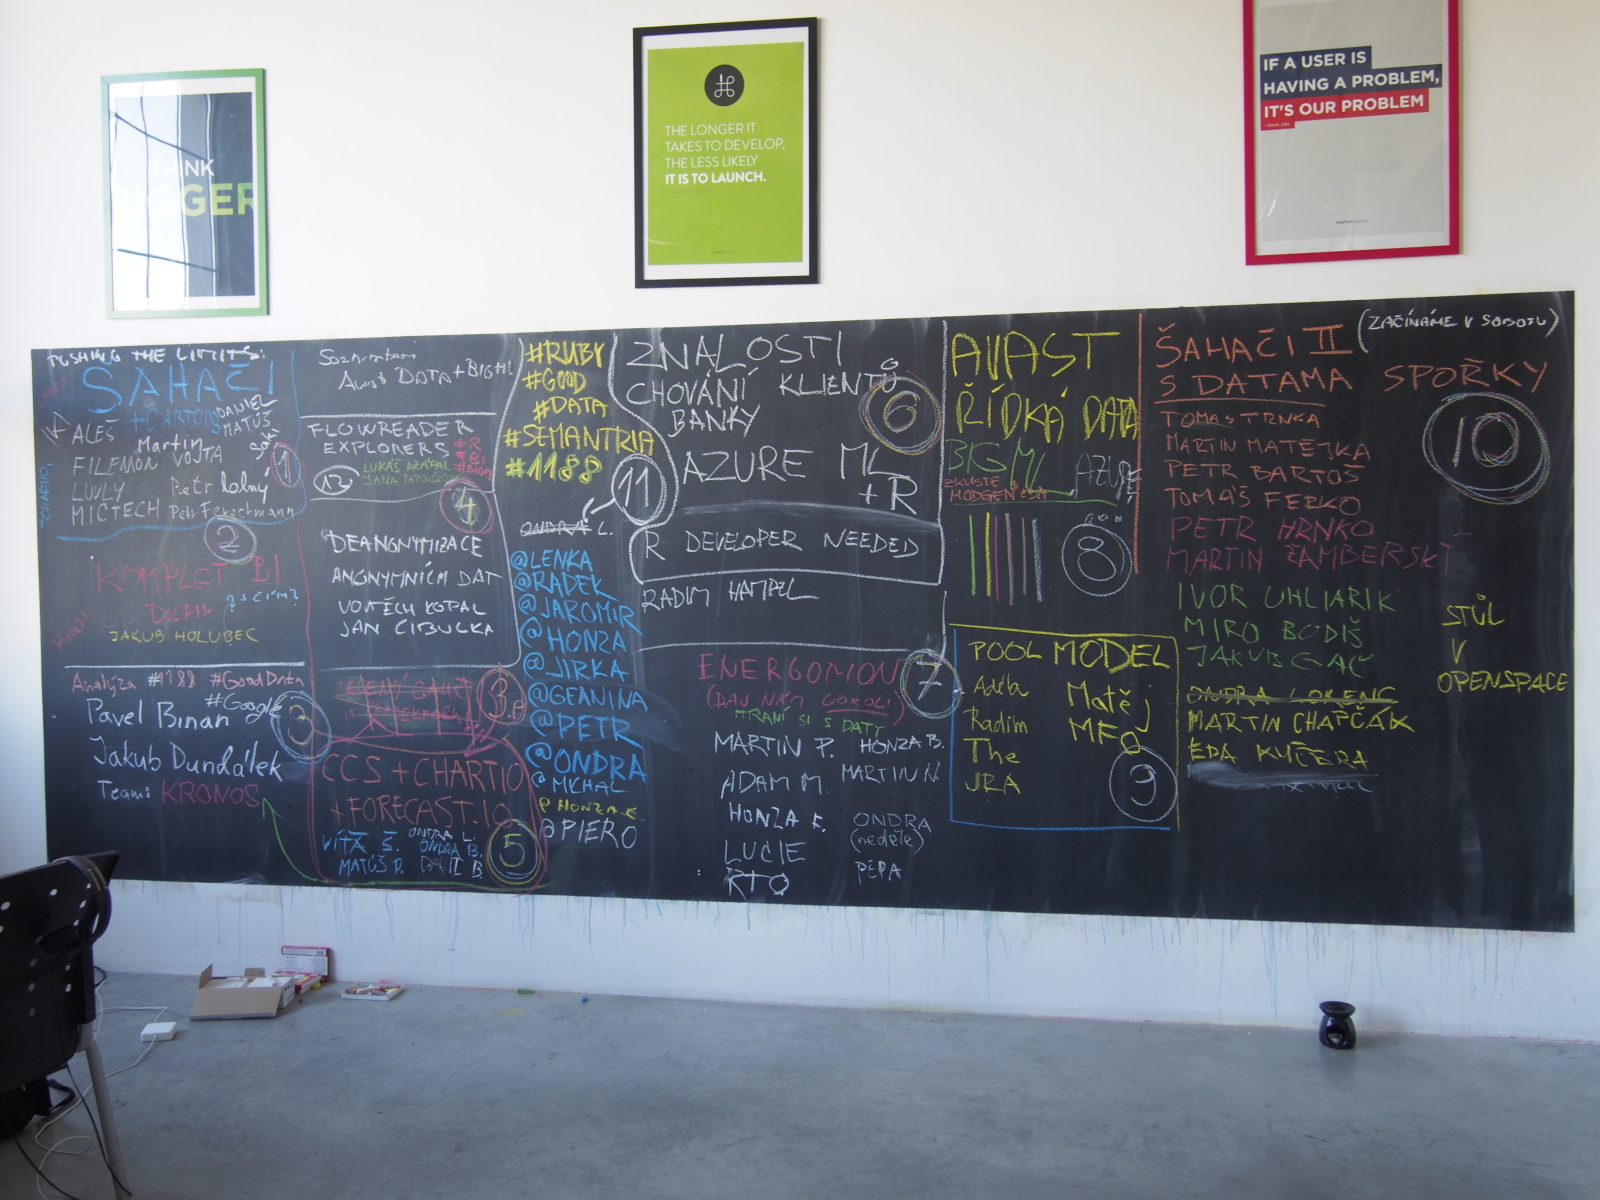 THINK
BIGGER
THE LONGER IT
TAKES TO DEVELOP,
THE LESS LIKELY
IT IS TO LAUNCH.
IF A USER IS
HAVING A PROBLEM,
IT'S OUR PROBLEM
PUSHING THE LIMITS:
ŠAHAČI
+ ČARTOIO
DANIEL
MATÚŠ
ALEŠ
Martin
FILEMON VOJTA
LUVLY
Petr Rolný
MICTECH
Petr Ferschmann
1
2
KOMPLET BI
DOLFIN
? S ČÍM ?
HONZA
JAKUB HOLUBEC
Analýza #1188 #GoodData
#Google
Pavel Binan
3
Jakub Dundálek
Team: KRONOS
Avast DATA + BIGML
FLOWREADER
EXPLORERS
#R
#BI
#BIGML
12
LUKÁŠ DRÁPAL
4
DEANONYMIZACE
ANONYMNÍCH DAT
VOJTĚCH KOPAL
JAN CIBULKA
CCS + CHARTIO
+ FORECAST.IO
VÍŤA Š.
ONDRA L.
ONDRA B.
MATÚŠ P.
DAVID B
5
#RUBY
#GOOD
#DATA
#SEMANTRIA
#1188
11
ONDRA L.
@LENKA
@RADEK
@JAROMIR
@HONZA
@JIRKA
@GEANINA
@PETR
@ONDRA
@MICHAL
@HONZA E.
@PIERO
ZNALOSTI
CHOVÁNÍ KLIENTŮ
BANKY
6
AZURE ML
+ R
R DEVELOPER NEEDED
RADIM HAMPEL
ENERGOMON
7
(DAJ NÁM COKOLI)
HRANÍ SI S DATY
MARTIN P.
HONZA B.
ADAM M.
MARTIN H.
HONZA E.
ONDRA
(neděle)
LUCIE
PEPA
RTO
AVAST
ŘÍDKÁ DATA
BIGML
AZURE
ZKUSTE
MODGEN
8
POOL MODEL
Adéla
Matěj
Radim
MFO
The
JRA
9
ŠAHAČI II
(ZAČÍNÁME V SOBOTU)
S DATAMA
SPOŘKY
10
TOMAS TRNKA
MARTIN MATĚJKA
PETR BARTOŠ
TOMÁŠ FERKO
PETR HRNKO
MARTIN ŽAMBERSKÝ
IVOR UHLIARIK
MIRO BODIŠ
JAKUB GAČ
ONDRA LORENC
MARTIN CHAPČÁK
EDA KUČERA
STŮL
V
OPENSPACE